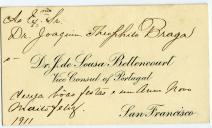 Ao Exmo Sr.
Dr. Joaquim Theophilo Braga
Dr. J. de Sousa Bettencourt
Vice Consul of Portugal
deseja boas festas e um Anno Novo
Muito feliz.
San Francisco
1911